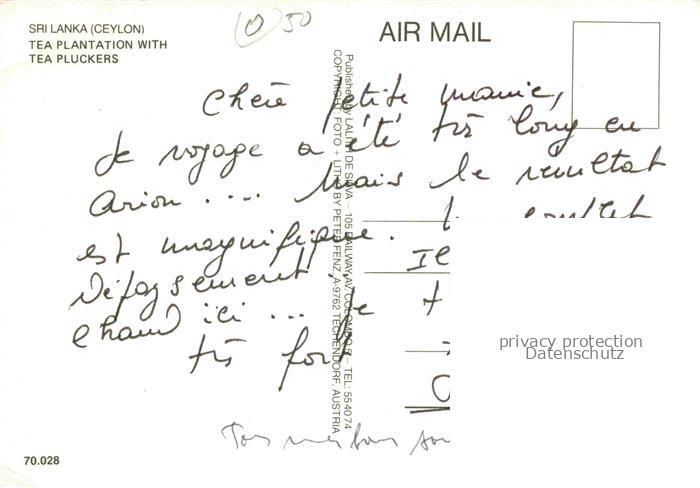 SRI LANKA (CEYLON)
TEA PLANTATION WITH
TEA PLUCKERS
50
AIR MAIL
Published by LALITH DE SILVA – 105 RAILWAY AV. COLOMBO 5 – TEL: 554074
COPYRIGHT FOTO + LITHO BY PETER FENZ, A-9762 TECHENDORF, AUSTRIA
Chère petite mamie,
Le voyage a été très long en
avion .... mais le résultat
est magnifique.
Dépaysement
chaud ici ... Je
très fort
privacy protection
Datenschutz
70.028